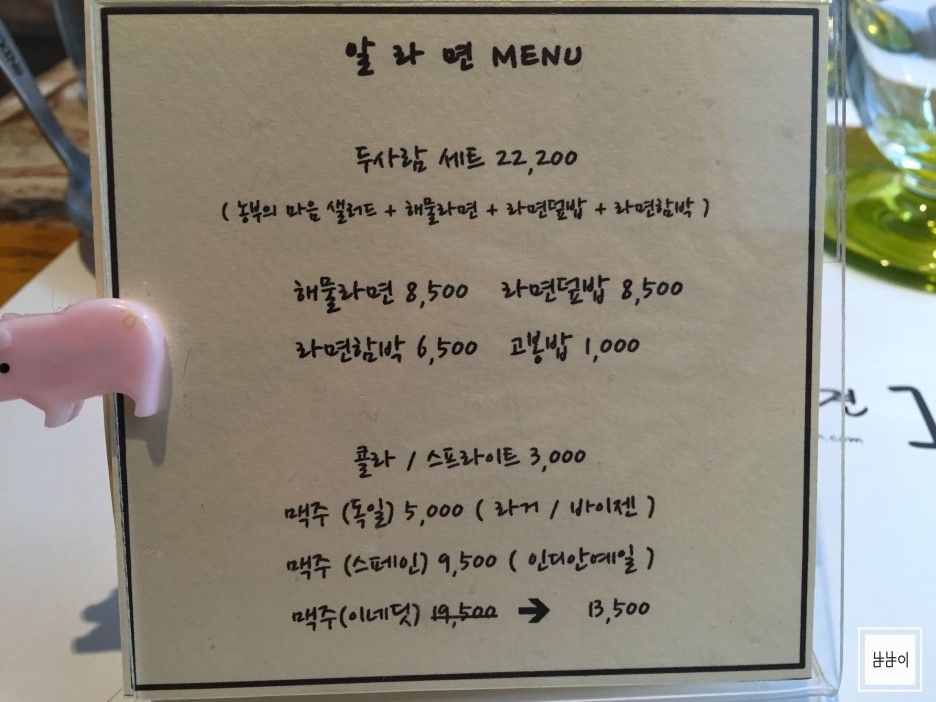 알라면 MENU
두사람 세트 22,200
( 농부의 마음 샐러드 + 해물라면 + 라면덮밥 + 라면함박 )
해물라면 8,500 라면덮밥 8,500
라면함박 6,500 고봉밥 1,000
콜라 / 스프라이트 3,000
맥주 (독일) 5,000 ( 라거 / 바이젠 )
맥주 (스페인) 9,500 ( 인디안에일 )
맥주(이네딧) 19,500 → 13,500
냠냠이